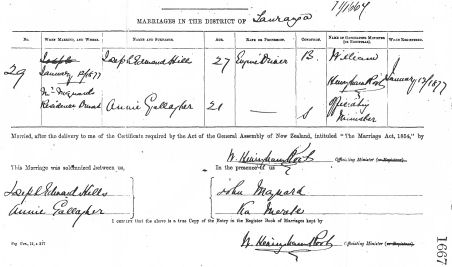 77/1667
MARRIAGES IN THE DISTRICT OF Tauranga
No. WHEN MARRIED, AND WHERE. NAME AND SURNAME. AGE. RANK OR PROFESSION. CONDITION NAME OF OFFICIATING MINISTER (OR REGISTRAR). WHEN REGISTERED.
29
Joseph
January 13/1877
Mr Maynard's
Residence
Joseph Edward Hill
27
Engine Driver
B.
William
Henningham Root
January 13/1877
Annie Gallagher
21
—
S
Officiating
Minister
Married, after the delivery to me of the Certificate required by the Act of the General Assembly of New Zealand, intituled "The Marriage Act, 1854," by
W. Henningham Root Officiating Minister (or Registrar).
This Marriage was solemnized between us, In the presence of us
Joseph Edward Hills
Annie Gallagher
John Maynard
I certify that the above is a true Copy of the Entry in the Register Book of Marriages kept by
W. Henningham Root Officiating Minister (or Registrar).
1667